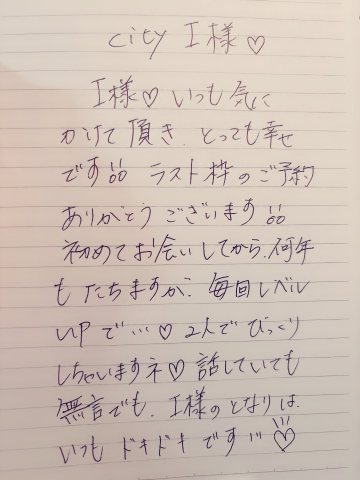 city I様♡
I様♡いつも気に
かけて頂き、とっても幸せ
です!! ラスト枠のご予約
ありがとうございます!!
初めてお会いしてから、何年
もたちますが、毎回レベル
UPで…♡ 2人でびっくり
しちゃいますネ♡ 話していても
無言でも、I様のとなりは、
いつもドキドキです…♡